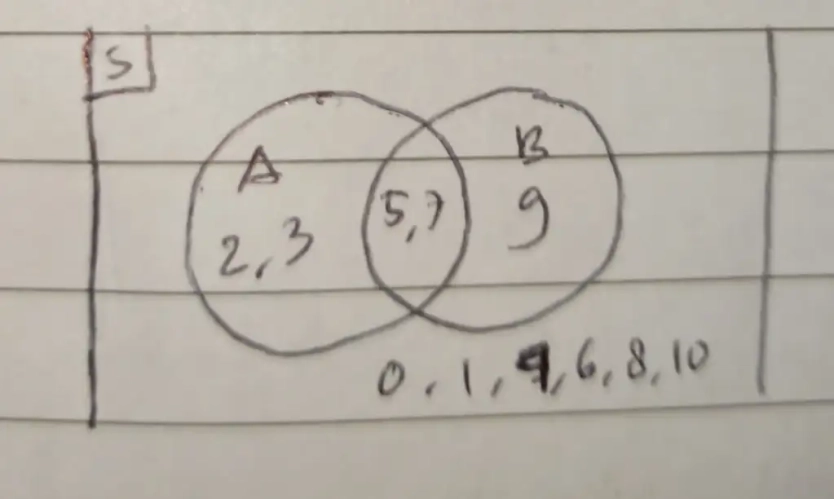 S
A B
2, 3 5, 7 9
0, 1, 4, 6, 8, 10